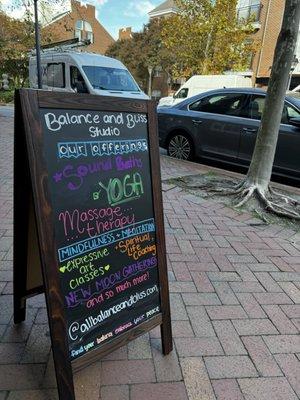 Balance and Bliss
Studio
our offerings
Sound Baths
YOGA
Massage
therapy
MINDFULNESS + MEDITATION
Expressive
art
classes
Spiritual
Life
Coaching
NEW MOON GATHERING
and so much more!
@allbalanceandbliss.com
find your balance, embrace your bliss